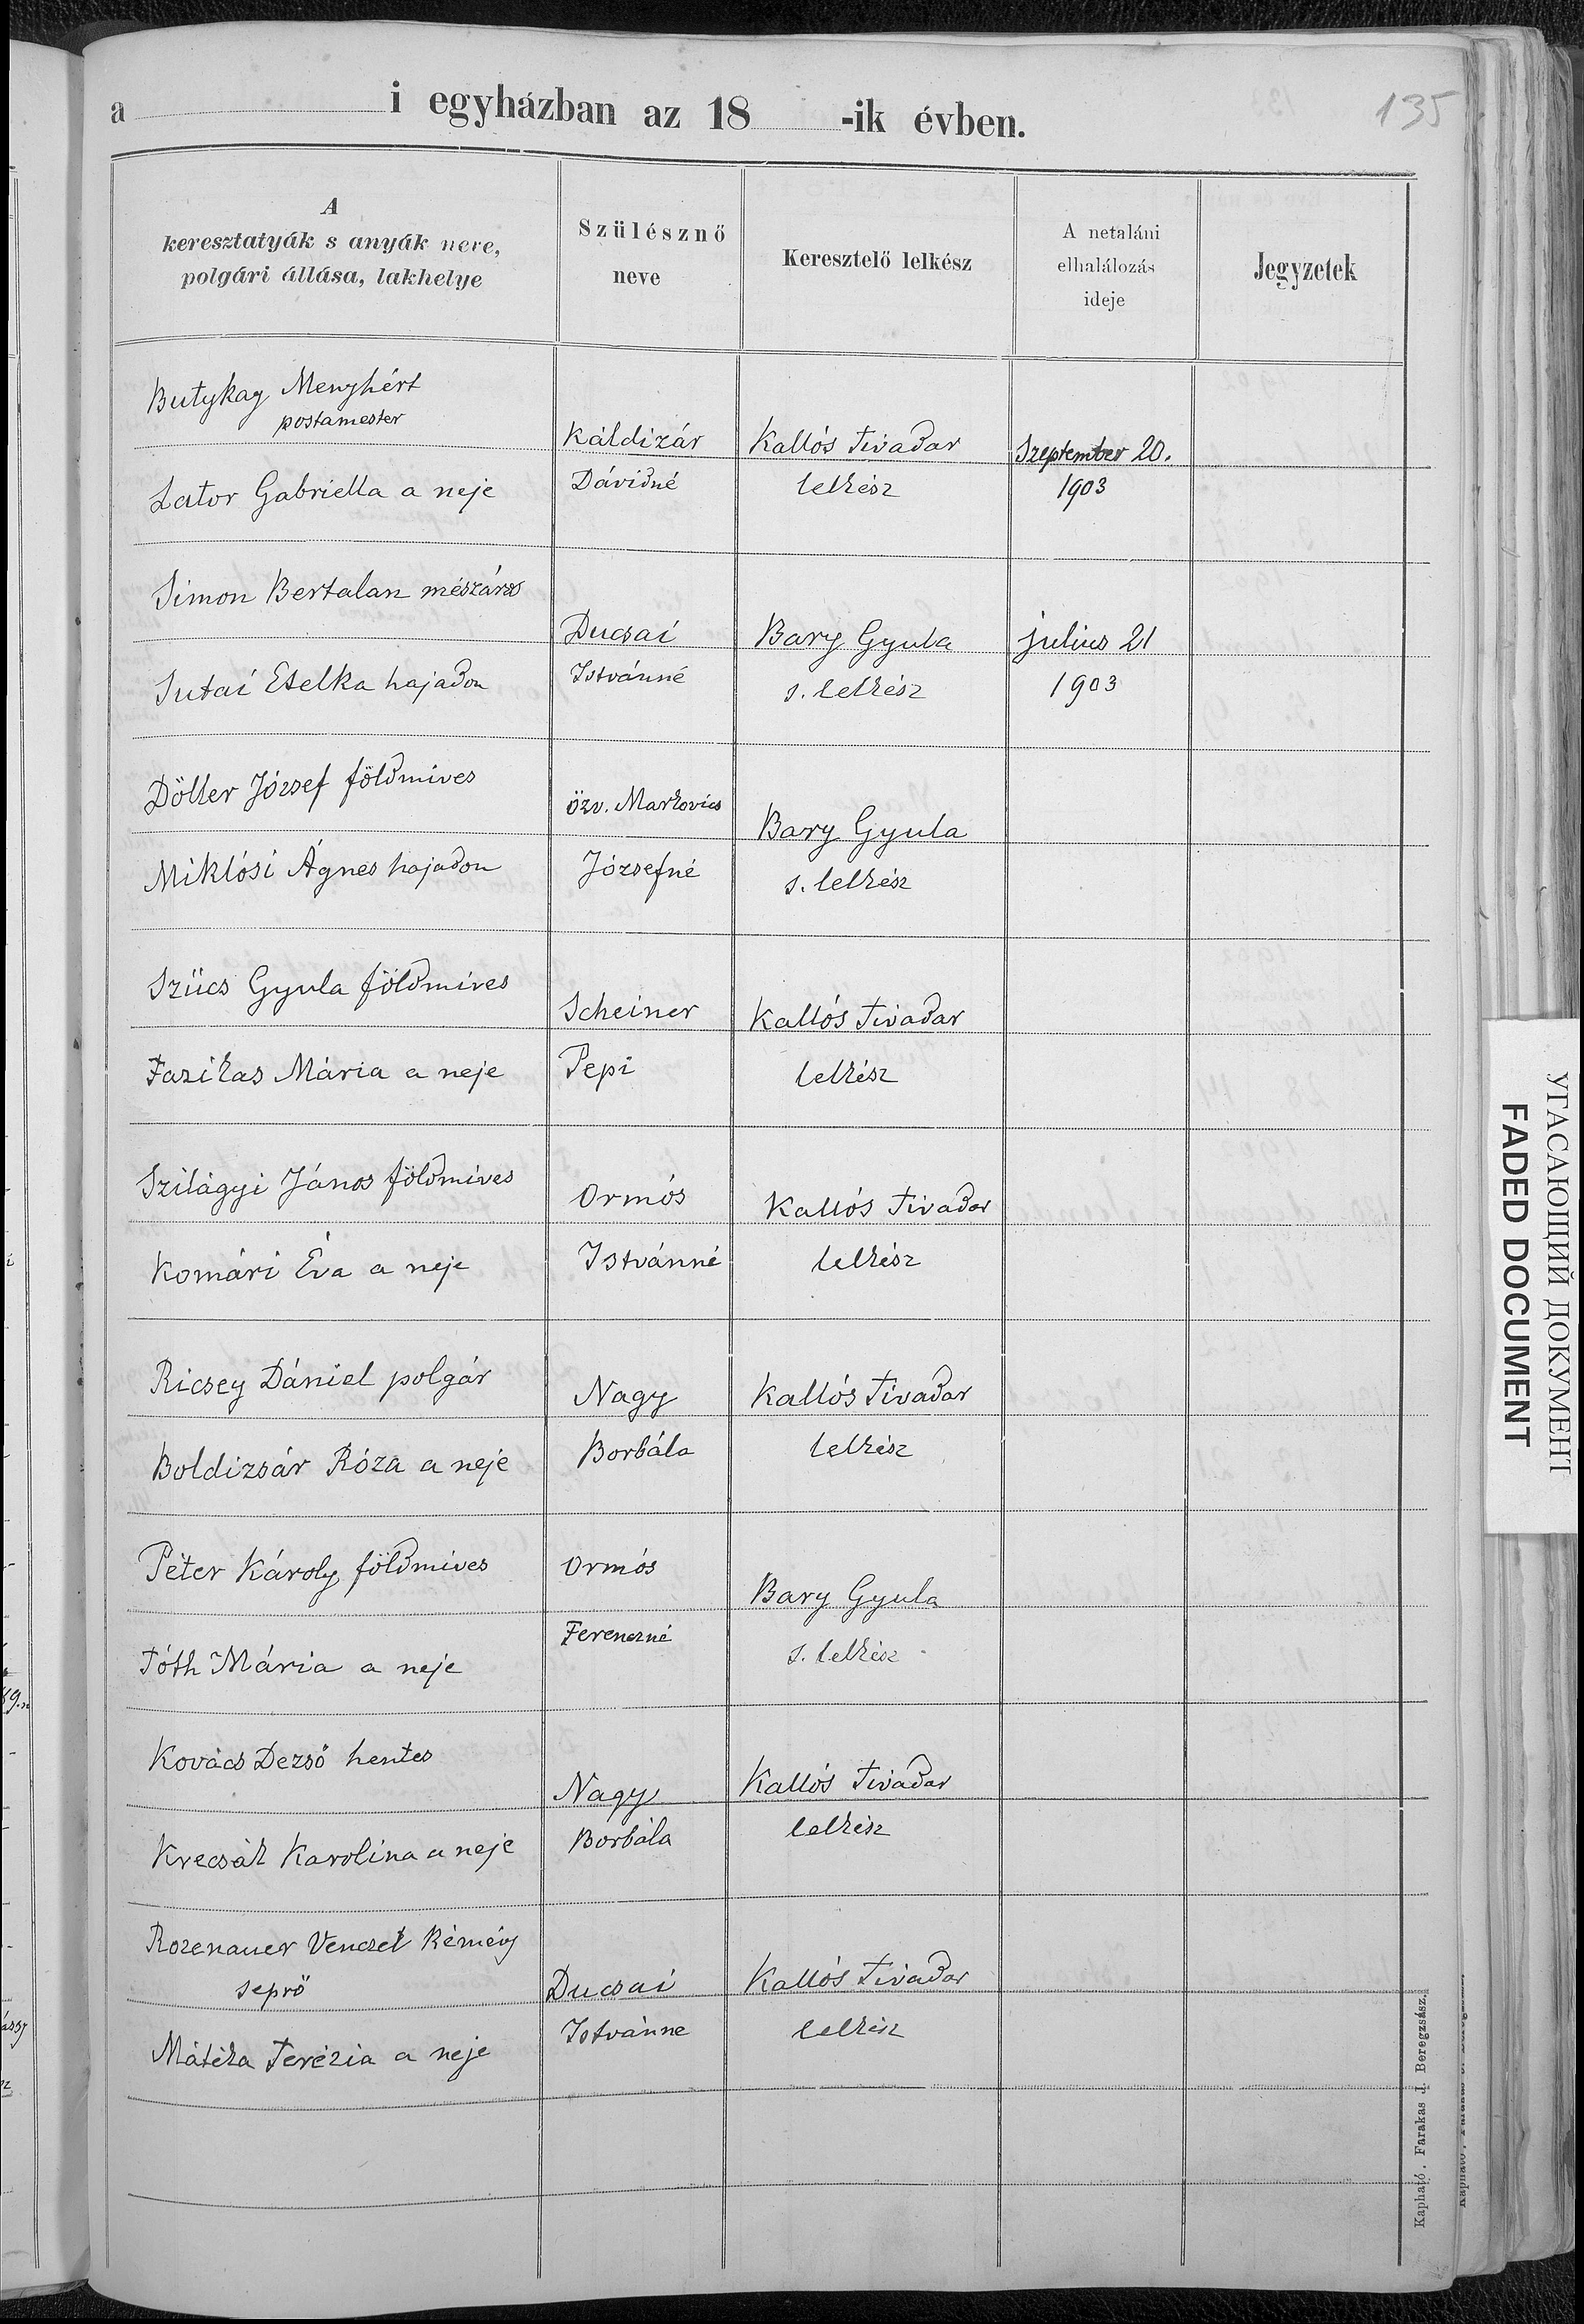 a i egyházban az 18 -ik évben.
135
A
keresztatyák s anyák neve,
polgári állása, lakhelye
Szülésznő
neve
Keresztelő lelkész
A netaláni
elhalálozás
ideje
Jegyzetek
Butykay Menyhért
postamester
Lator Gabriella a neje
Káldizár
Dávidné
Kallós Tivadar
lelkész
Szeptember 20.
1903
Simon Bertalan mészáros
Sutai Etelka hajadon
Ducsai
Istvánné
Bary Gyula
s. lelkész
julius 21
1903
Döller József földmives
Miklósi Ágnes hajadon
özv. Markovics
Józsefné
Bary Gyula
s. lelkész
Szücs Gyula földmives
Fazikas Mária a neje
Scheiner
Pepi
Kallós Tivadar
lelkész
Szilágyi János földmives
Komári Éva a neje
Ormós
Istvánné
Kallós Tivadar
lelkész
Ricsey Dániel polgár
Boldizsár Róza a neje
Nagy
Borbála
Kallós Tivadar
lelkész
Péter Károly földmives
Tóth Mária a neje
Ormós
Ferenczné
Bary Gyula
s. lelkész
Kovács Dezső hentes
Krecsák Karolina a neje
Nagy
Borbála
Kallós Tivadar
lelkész
Rozenauer Venczel kémény
seprő
Mátéka Terézia a neje
Ducsai
Istvánne
Kallós Tivadar
lelkész
Kapható. Farakas J. Beregszász.
УГАСАЮЩИЙ ДОКУМЕНТ
FADED DOCUMENT